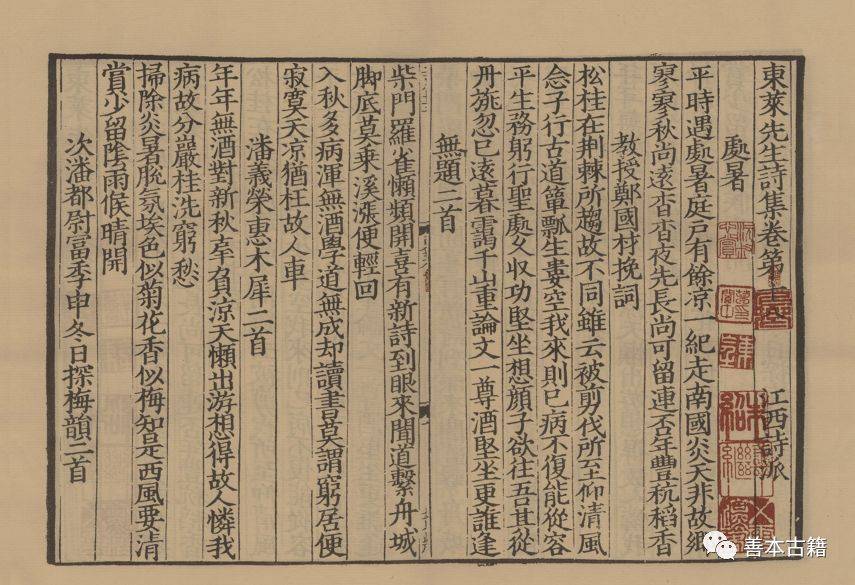 東萊先生詩集卷第十八 江西詩派
處暑
平時遇處暑庭戶有餘凉一紀走南國炎天非故鄉
寥寥秋尚遠杳杳夜先長尚可留連否年豐秔稻香
教授鄭國材挽詞
松桂在荆棘所趨故不同雖云被剪伐所至仰清風
念子行古道簞瓢生婁空我來則已病不復能從容
平生務躬行聖處乆収功堅坐想顔子欲往吾其從
丹旐忽已遠暮靄千山重論文一尊酒堅坐更誰逢
無題二首
柴門羅雀懶頻開喜有新詩到眼來聞道繫舟城
脚底莫乗溪漲便輕回
入秋多病渾無酒學道無成却讀書莫謂窮居便
寂寞天凉猶枉故人車
潘義榮惠木犀二首
年年無酒對新秋辜負凉天懶出游想得故人憐我
病故分巖桂洗窮愁
掃除炎暑脫氛埃色似菊花香似梅知是西風要清
賞少留陰雨候晴開
次潘都尉富季申冬日探梅韻二首
善本古籍